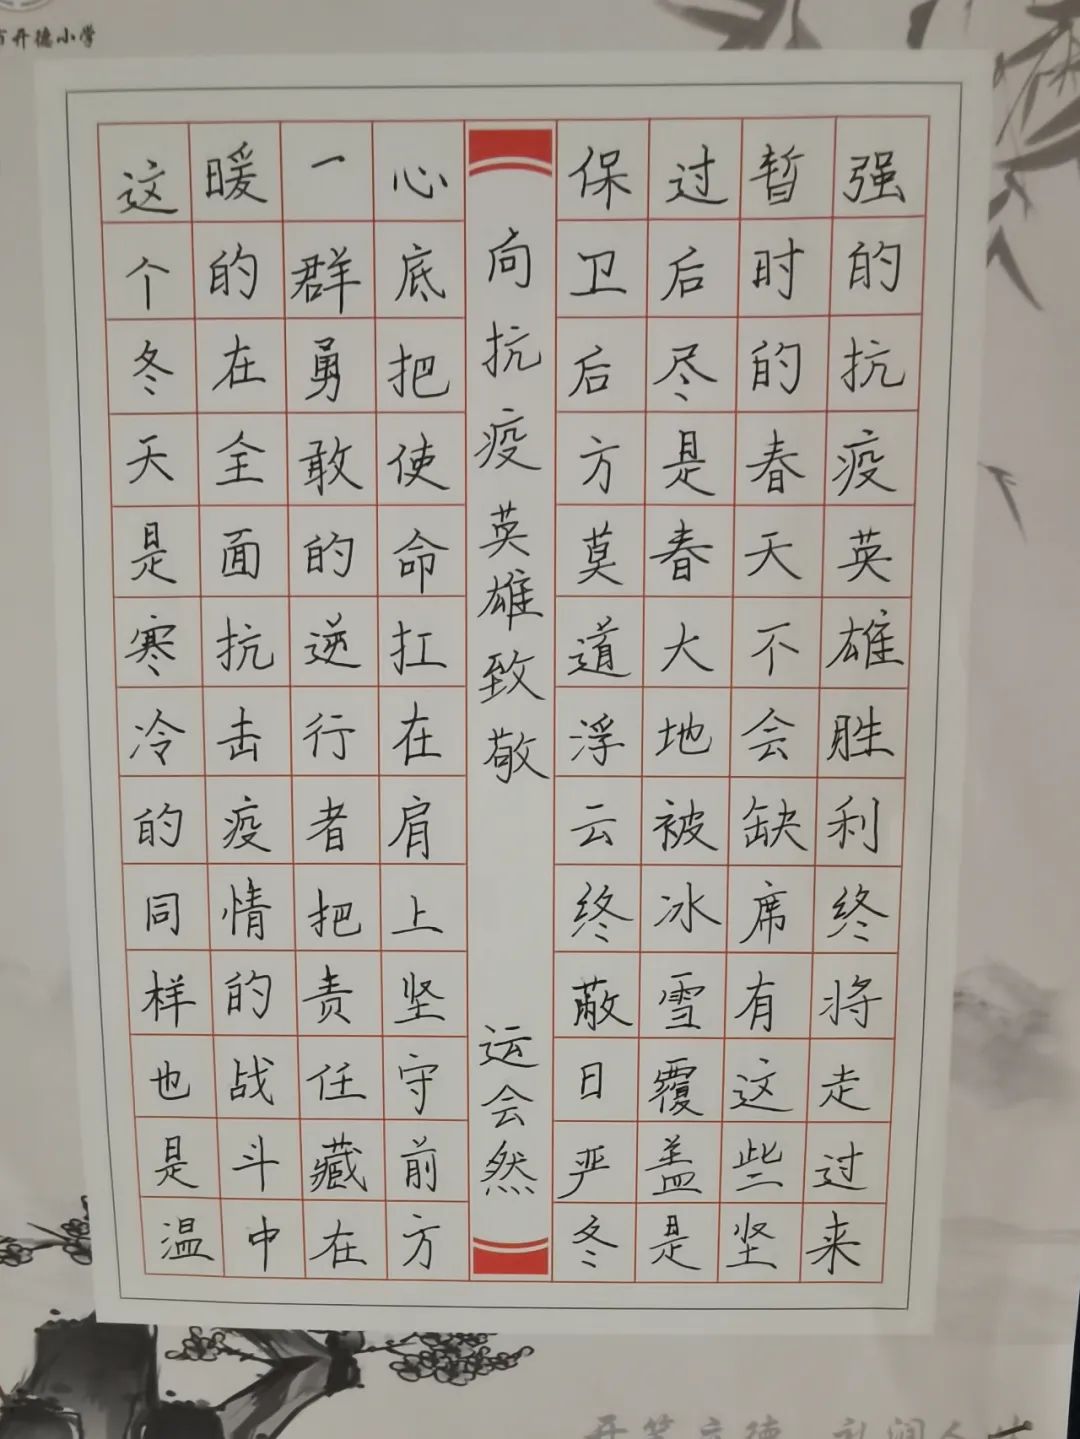 开德小学
这个冬天是寒冷的同样也是温
暖的在全面抗击疫情的战斗中
一群勇敢的逆行者把责任藏在
心底把使命扛在肩上坚守前方
向抗疫英雄致敬
运会然
保卫后方莫道浮云终蔽日严冬
过后尽是春大地被冰雪覆盖是
暂时的春天不会缺席有这些坚
强的抗疫英雄胜利终将走过来